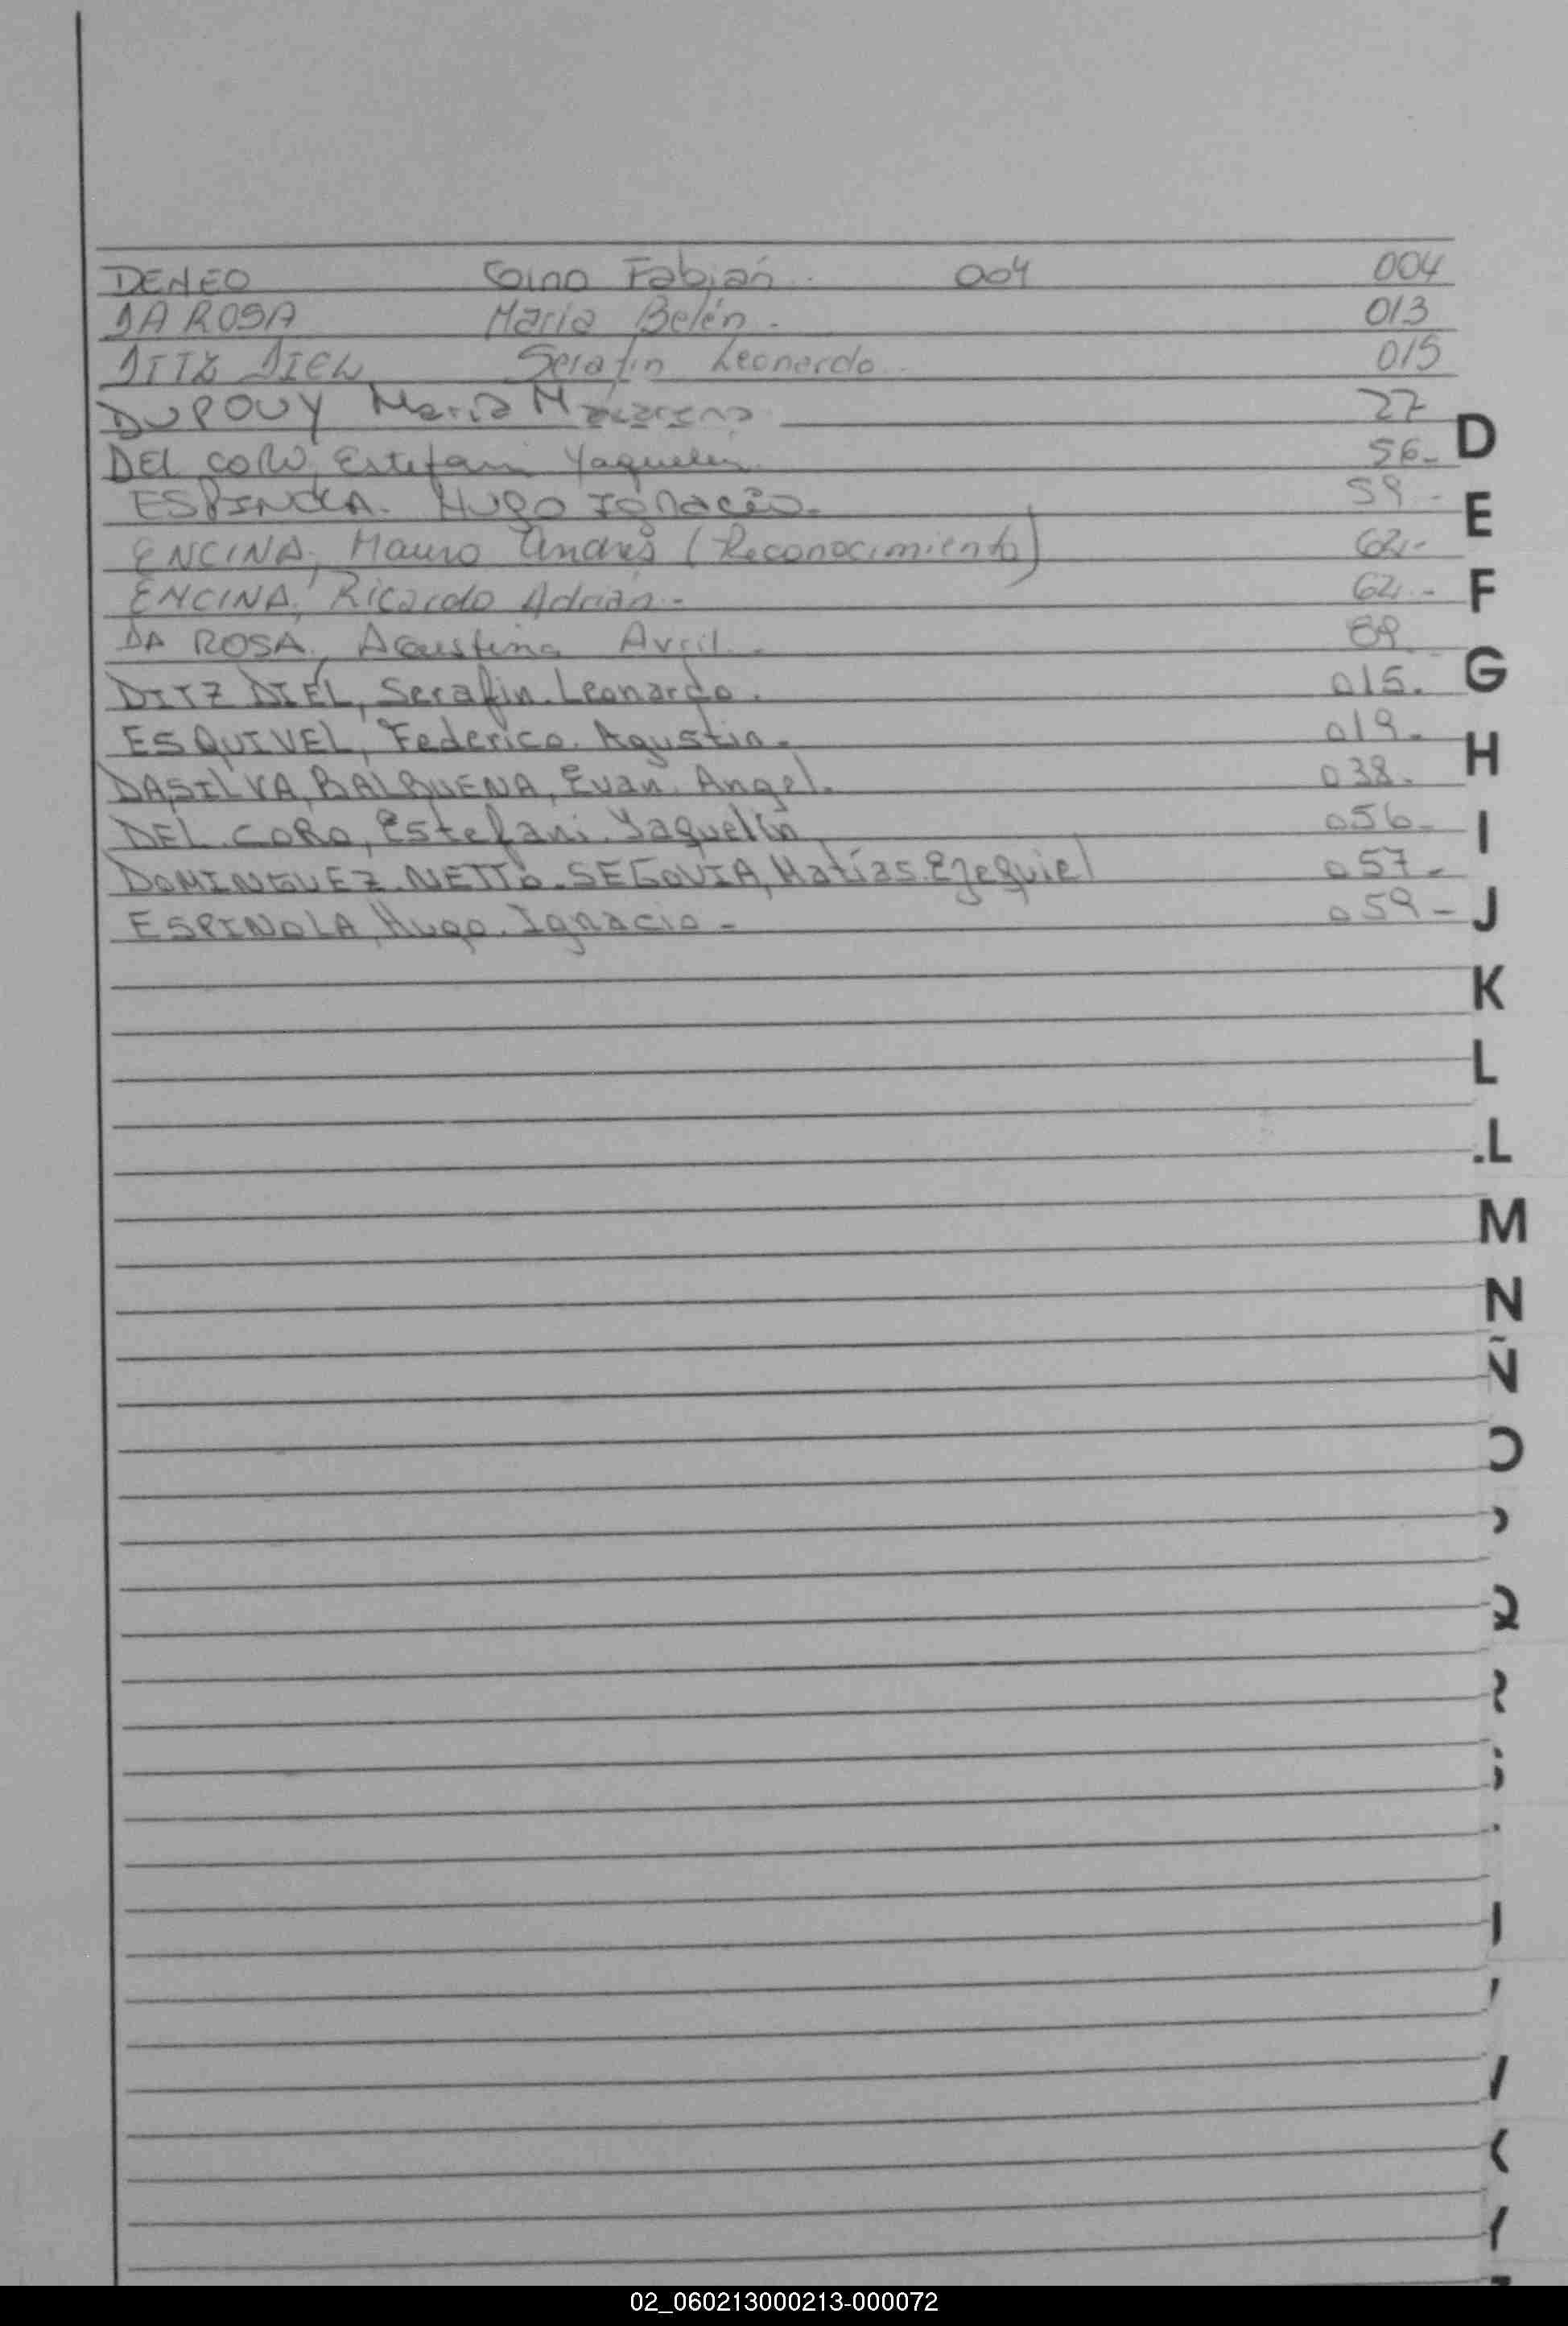 DENEO Gino Fabián. 004 004
DA ROSA María Belén. 013
DITZ DIEL Serafín Leonardo. 015
DUPOUY María Macarena 27
DEL CORO, Estefani Yaquelin 56-
ESPINOLA. Hugo Ignacio. 59-
ENCINA, Mauro Andrés (Reconocimiento) 62.-
ENCINA, Ricardo Adrián.- 62.-
DA ROSA, Agustina Avril.- 89
DITZ DIEL, Serafin. Leonardo. 015.
ESQUIVEL, Federico. Agustin.- 019.
DASILVA, BALBUENA, Evan. Angel. 038.
DEL. CORO, Estefani. Yaquelin 056-
DOMINGUEZ. NETTO. SEGOVIA, Matías. Ezequiel 057-
ESPINOLA, Hugo. Ignacio - 059-
D
E
F
G
H
I
J
K
L
.L
M
N
Ñ
02_060213000213-000072